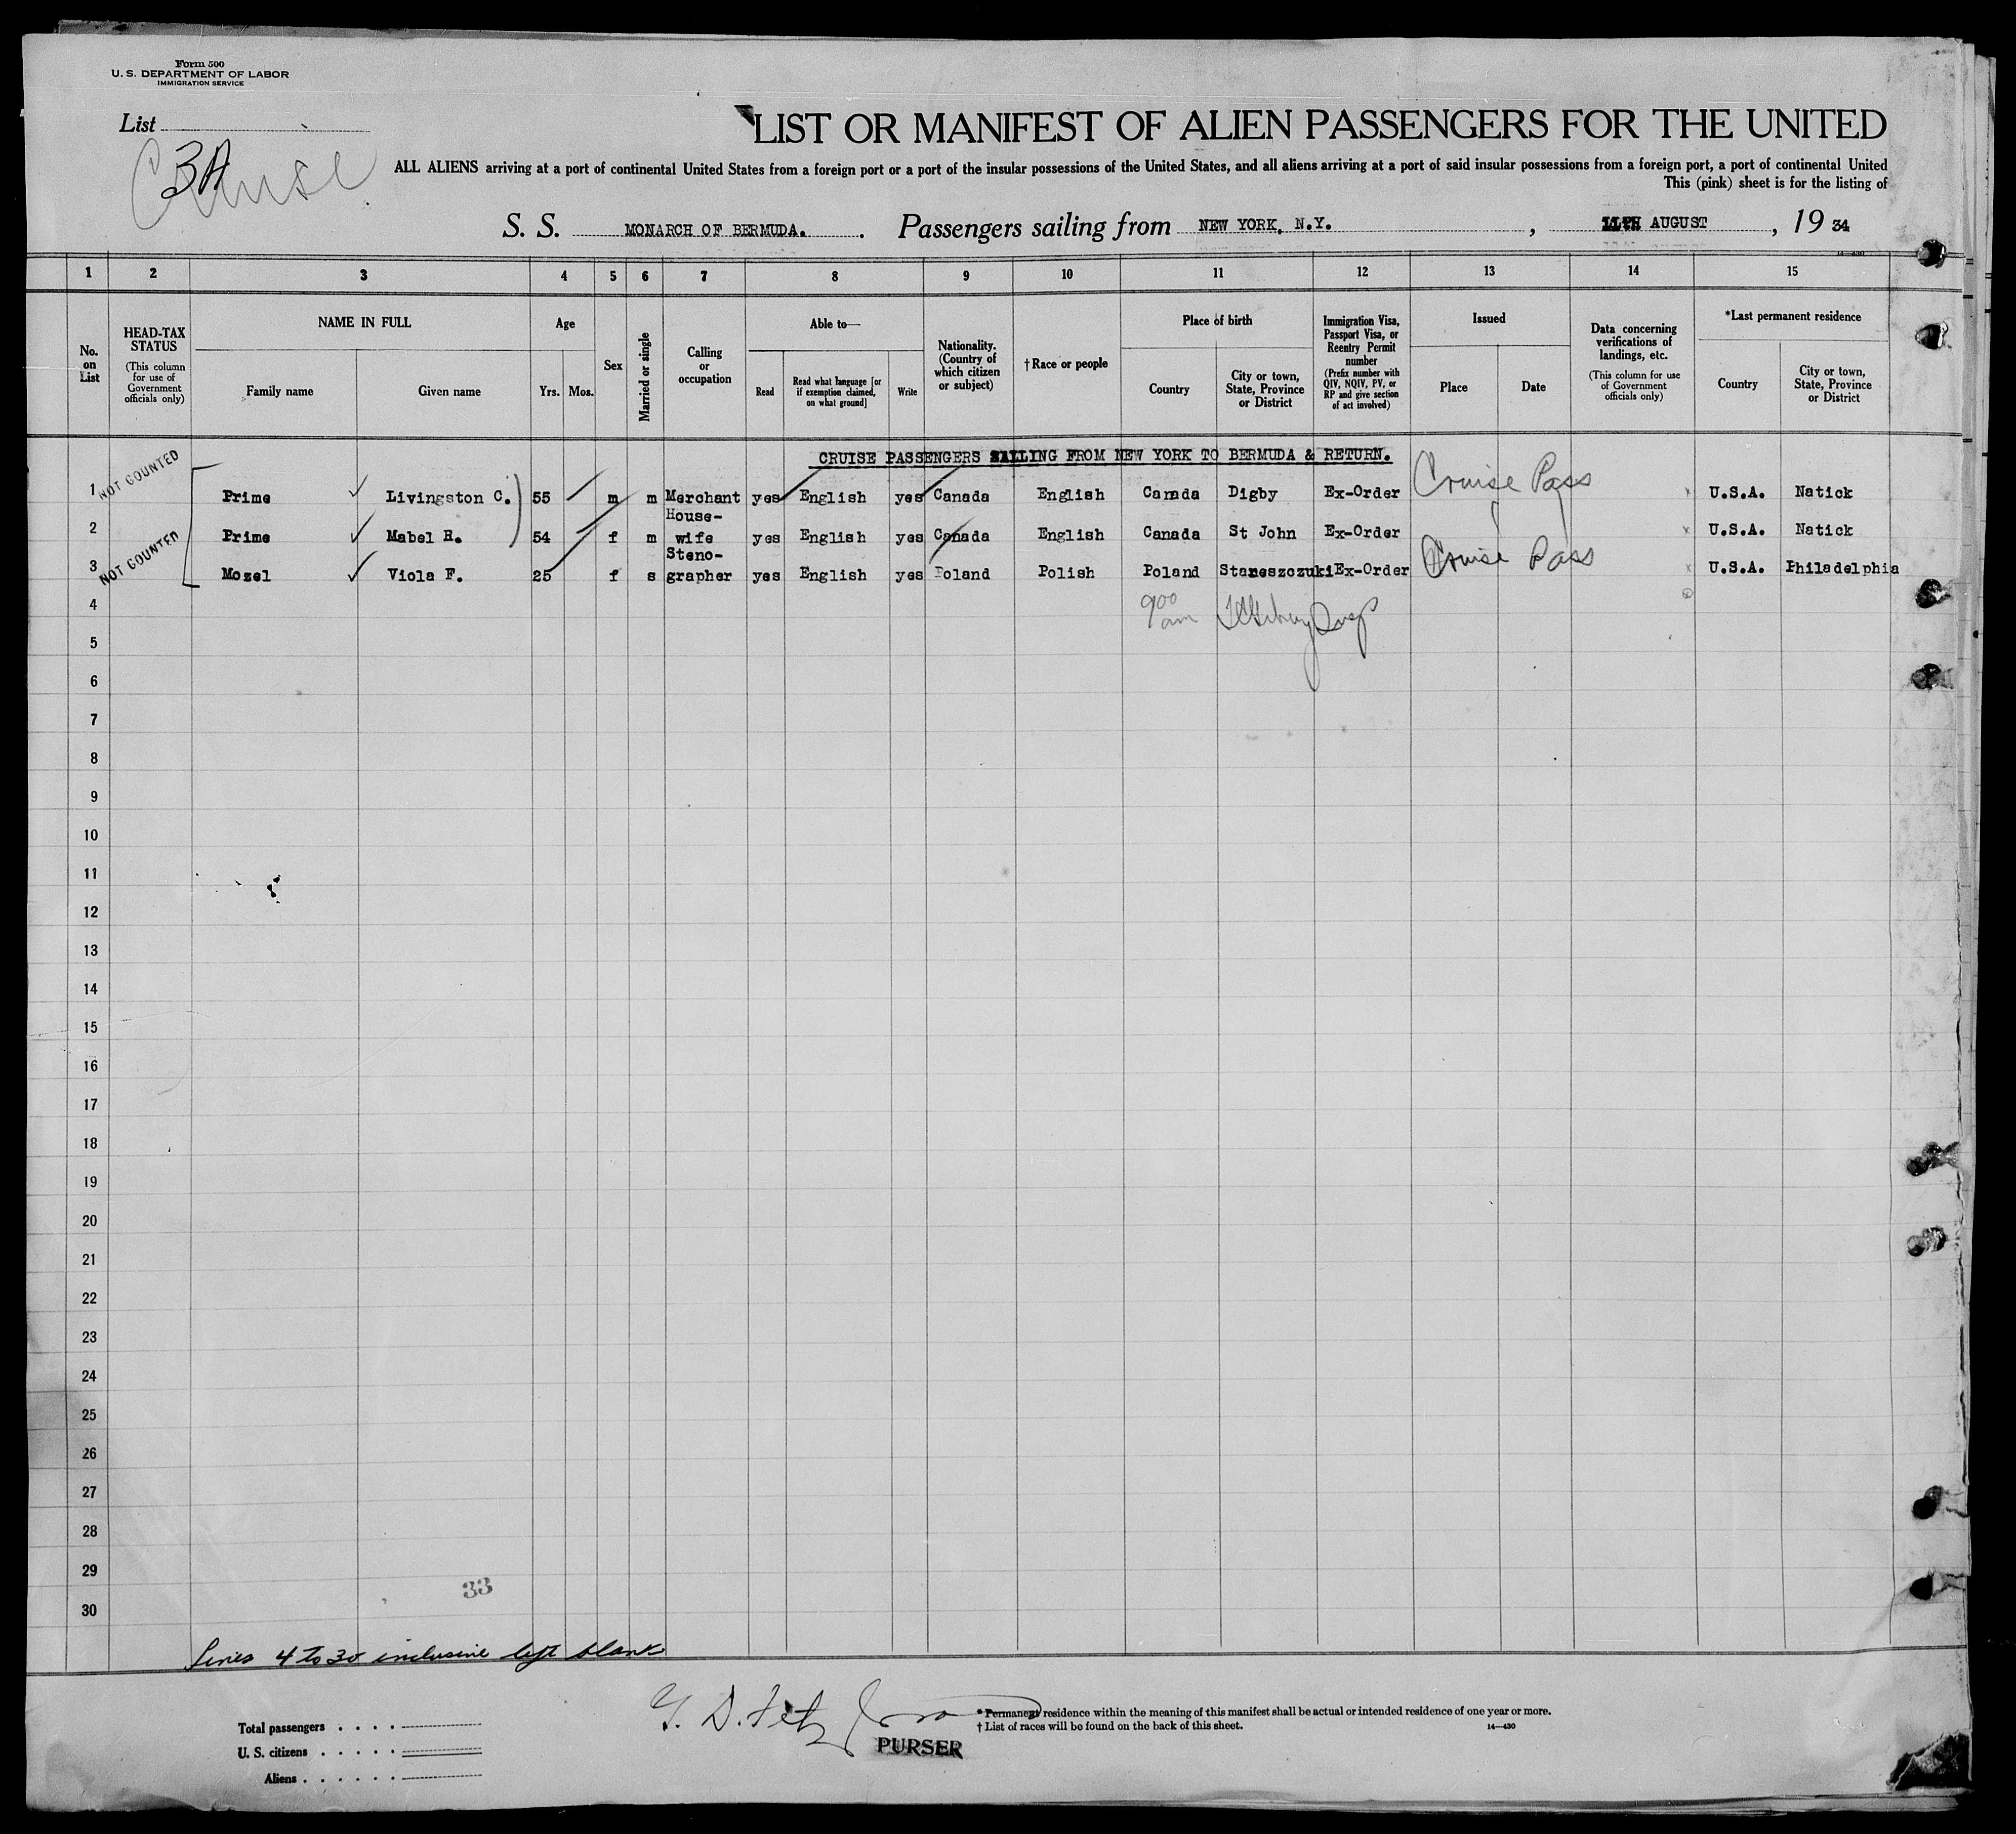 Form 500
U. S. DEPARTMENT OF LABOR
IMMIGRATION SERVICE
List
3A
Cruise
LIST OR MANIFEST OF ALIEN PASSENGERS FOR THE UNITED
ALL ALIENS arriving at a port of continental United States from a foreign port or a port of the insular possessions of the United States, and all aliens arriving at a port of said insular possessions from a foreign port, a port of continental United
This (pink) sheet is for the listing of
S. S. MONARCH OF BERMUDA. Passengers sailing from NEW YORK, N.Y. , 11TH AUGUST , 19 34
14—430
1 2 3 4 5 6 7 8 9 10 11 12 13 14 15
No. on List
HEAD-TAX STATUS
(This column for use of Government officials only)
NAME IN FULL
Family name
Given name
Age
Yrs. Mos.
Sex
Married or single
Calling or occupation
Able to—
Read
Read what language [or if exemption claimed, on what ground]
Write
Nationality. (Country of which citizen or subject)
†Race or people
Place of birth
Country
City or town, State, Province or District
Immigration Visa, Passport Visa, or Reentry Permit number
(Prefix number with QIV, NQIV, PV, or RP and give section of act involved)
Issued
Place
Date
Data concerning verifications of landings, etc.
(This column for use of Government officials only)
*Last permanent residence
Country
City or town, State, Province or District
CRUISE PASSENGERS SAILING FROM NEW YORK TO BERMUDA & RETURN.
NOT COUNTED
1 Prime Livingston C. 55 m m Merchant yes English yes Canada English Canada Digby Ex-Order Cruise Pass U.S.A. Natick
2 Prime Mabel R. 54 f m House-wife yes English yes Canada English Canada St John Ex-Order U.S.A. Natick
NOT COUNTED
3 Mozel Viola F. 25 f s Steno-grapher yes English yes Poland Polish Poland Staneszczuki Ex-Order Cruise Pass U.S.A. Philadelphia
4 9 00 am
5
6
7
8
9
10
11
12
13
14
15
16
17
18
19
20
21
22
23
24
25
26
27
28
29
30
33
Lines 4 to 30 inclusive left blank
Total passengers
U. S. citizens
Aliens
PURSER
* Permanent residence within the meaning of this manifest shall be actual or intended residence of one year or more.
† List of races will be found on the back of this sheet.
14—430